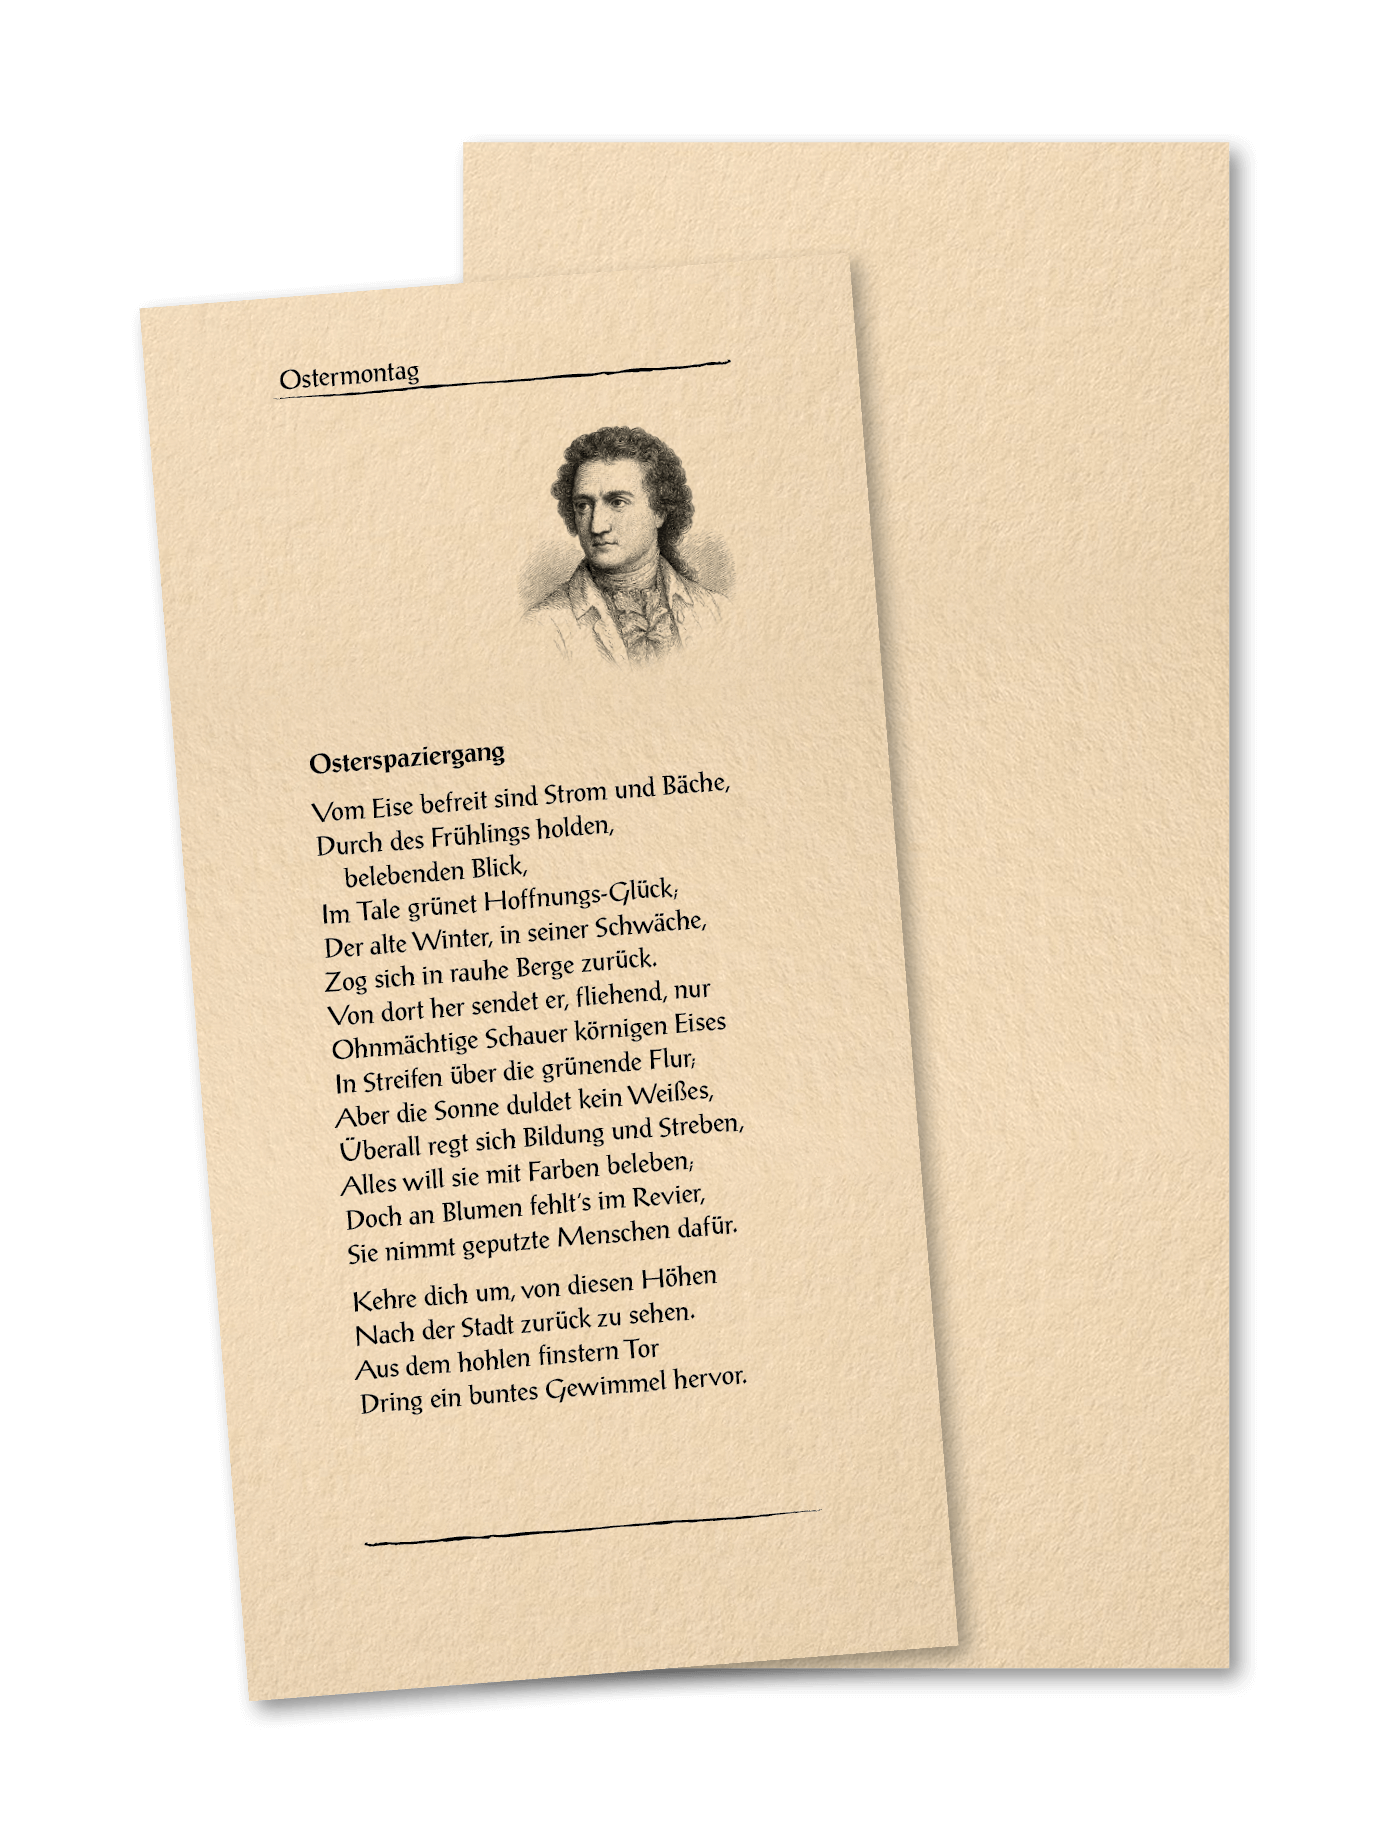 Ostermontag
Osterspaziergang
Vom Eise befreit sind Strom und Bäche,
Durch des Frühlings holden,
belebenden Blick,
Im Tale grünet Hoffnungs-Glück;
Der alte Winter, in seiner Schwäche,
Zog sich in rauhe Berge zurück.
Von dort her sendet er, fliehend, nur
Ohnmächtige Schauer körnigen Eises
In Streifen über die grünende Flur;
Aber die Sonne duldet kein Weißes,
Überall regt sich Bildung und Streben,
Alles will sie mit Farben beleben;
Doch an Blumen fehlt's im Revier,
Sie nimmt geputzte Menschen dafür.
Kehre dich um, von diesen Höhen
Nach der Stadt zurück zu sehen.
Aus dem hohlen finstern Tor
Dring ein buntes Gewimmel hervor.